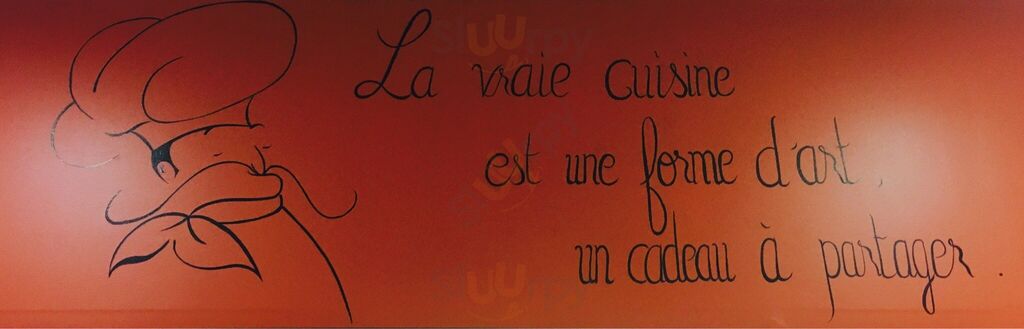 La vraie cuisine
est une forme d'art,
un cadeau à partager.